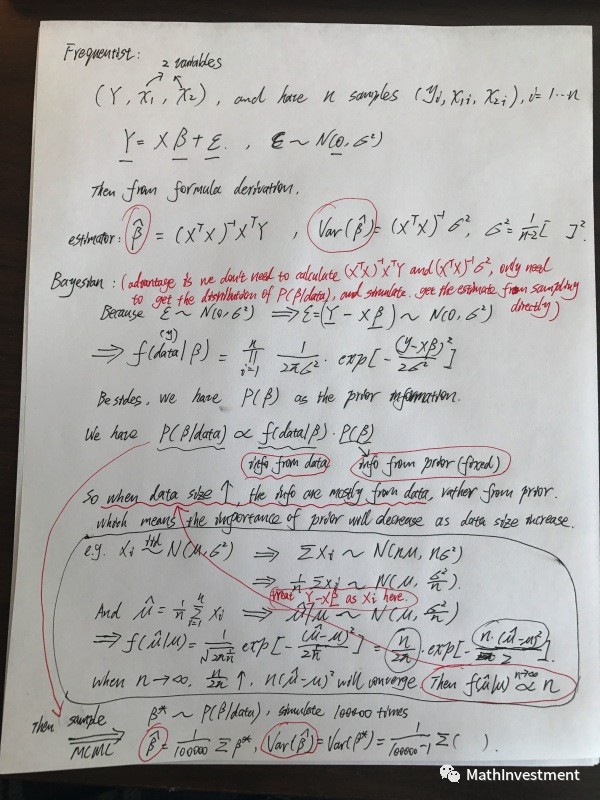 Frequentist:
2 variables
(Y, X₁, X₂), and have n samples (yᵢ, x₁ᵢ, x₂ᵢ), i=1…n
Y = Xβ + ε., ε ~ N(0, σ²)
Then from formula derivation,
estimator: β̂ = (XᵀX)⁻¹XᵀY , Var(β̂) = (XᵀX)⁻¹σ², σ² = 1/(n-2) [ ]².
Bayesian: (advantage is we don't need to calculate (XᵀX)⁻¹XᵀY and (XᵀX)⁻¹σ², only need
to get the distribution of P(β/data), and simulate. get the estimate from sampling
directly)
Because ε ~ N(0, σ²) ⟹ ε = (Y - Xβ) ~ N(0, σ²)
(y)
⟹ f(data|β) = ∏ⁿᵢ₌₁ 1/(2πσ²) · exp[-(y-Xβ)²/(2σ²)]
Besides, we have P(β) as the prior information.
We have P(β/data) ∝ f(data|β) · P(β)
info from data info from prior (fixed)
So when data size ↑, the info are mostly from data, rather from prior.
which means the importance of prior will decrease as data size increase.
e.g. xᵢ iid~ N(μ, σ²) ⟹ Σxᵢ ~ N(nμ, nσ²)
⟹ 1/n Σxᵢ ~ N(μ, σ²/n).
treat Y-Xβ as Xᵢ here.
And μ̂ = 1/n Σⁿᵢ₌₁ xᵢ ⟹ μ̂/μ ~ N(μ, σ²/n)
⟹ f(μ̂|μ) = exp[-(μ̂-μ)²] = n/2π · exp[-n·(μ̂-μ)²/2].
when n→∞, n/2π ↑, n(μ̂-μ)² will converge. Then f(μ̂|μ) ∝ n
n→∞
Then sample β* ~ P(β/data), simulate 100000 times
MCMC β̂ = 1/100000 Σβ*, Var(β̂) = Var(β*) = 1/(100000-1) Σ( ).
MathInvestment